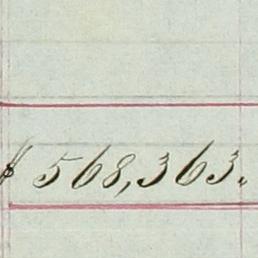 $ 568,363.